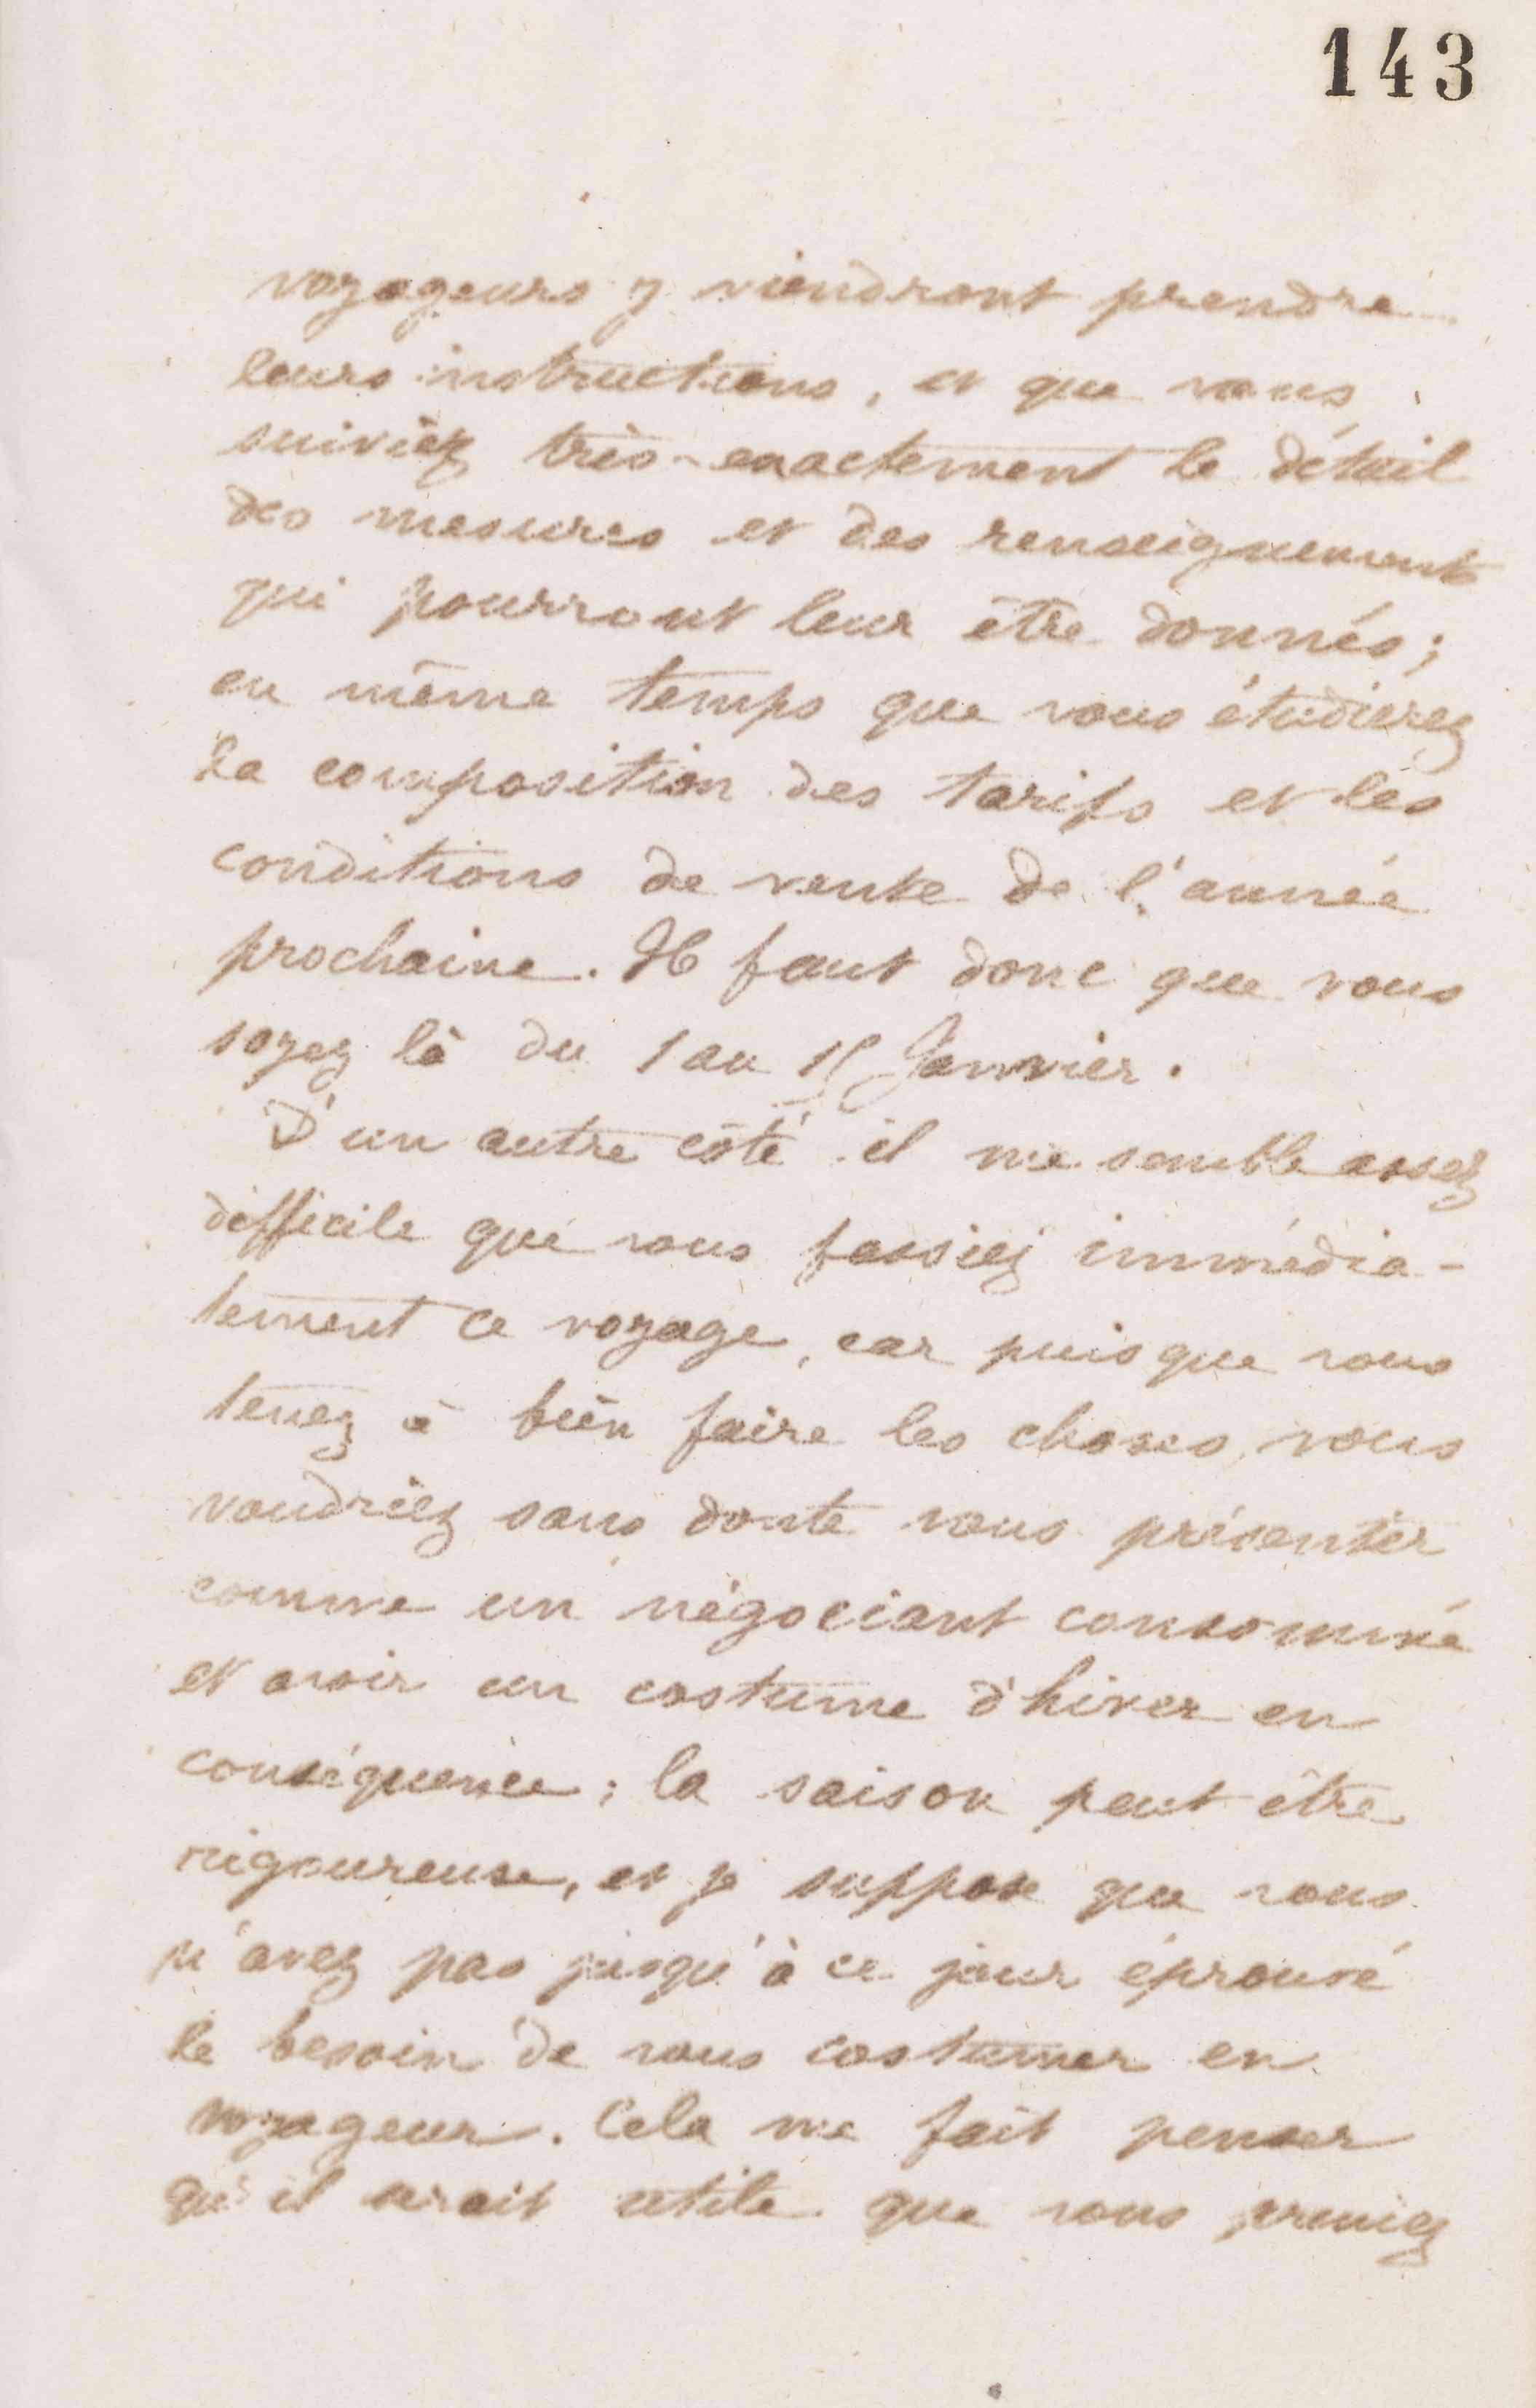 143
voyageurs y viendront prendre
leurs instructions, et que vous
suiviez très-exactement le détail
des mesures et des renseignements
qui pourront leur être donnés;
en même temps que vous étudierez
la composition des tarifs et les
conditions de vente de l'année
prochaine. Il faut donc que vous
soyez là du 1 au 15 Janvier.
D'un autre côté il me semble assez
difficile que vous fassiez immédia-
tement ce voyage, car puisque vous
tenez à bien faire les choses, vous
voudriez sans doute vous présenter
comme un négociant consommé
et avoir un costume d'hiver en
conséquence; la saison peut être
rigoureuse, et je suppose que vous
n'avez pas jusqu'à ce jour éprouvé
le besoin de vous costumer en
voyageur. Cela me fait penser
qu'il serait utile que vous preniez